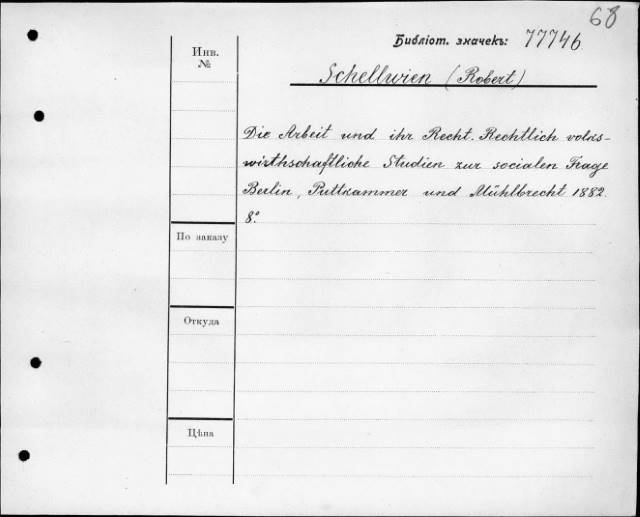 68
Библіот. значекъ: 77746
Инв.
№
Schellwien (Robert)
Die Arbeit und ihr Recht. Rechtlich volks-
wirthschaftliche Studien zur socialen Frage
Berlin, Puttkammer und Mühlbrecht 1882.
8.°
По заказу
Откуда
Цѣна